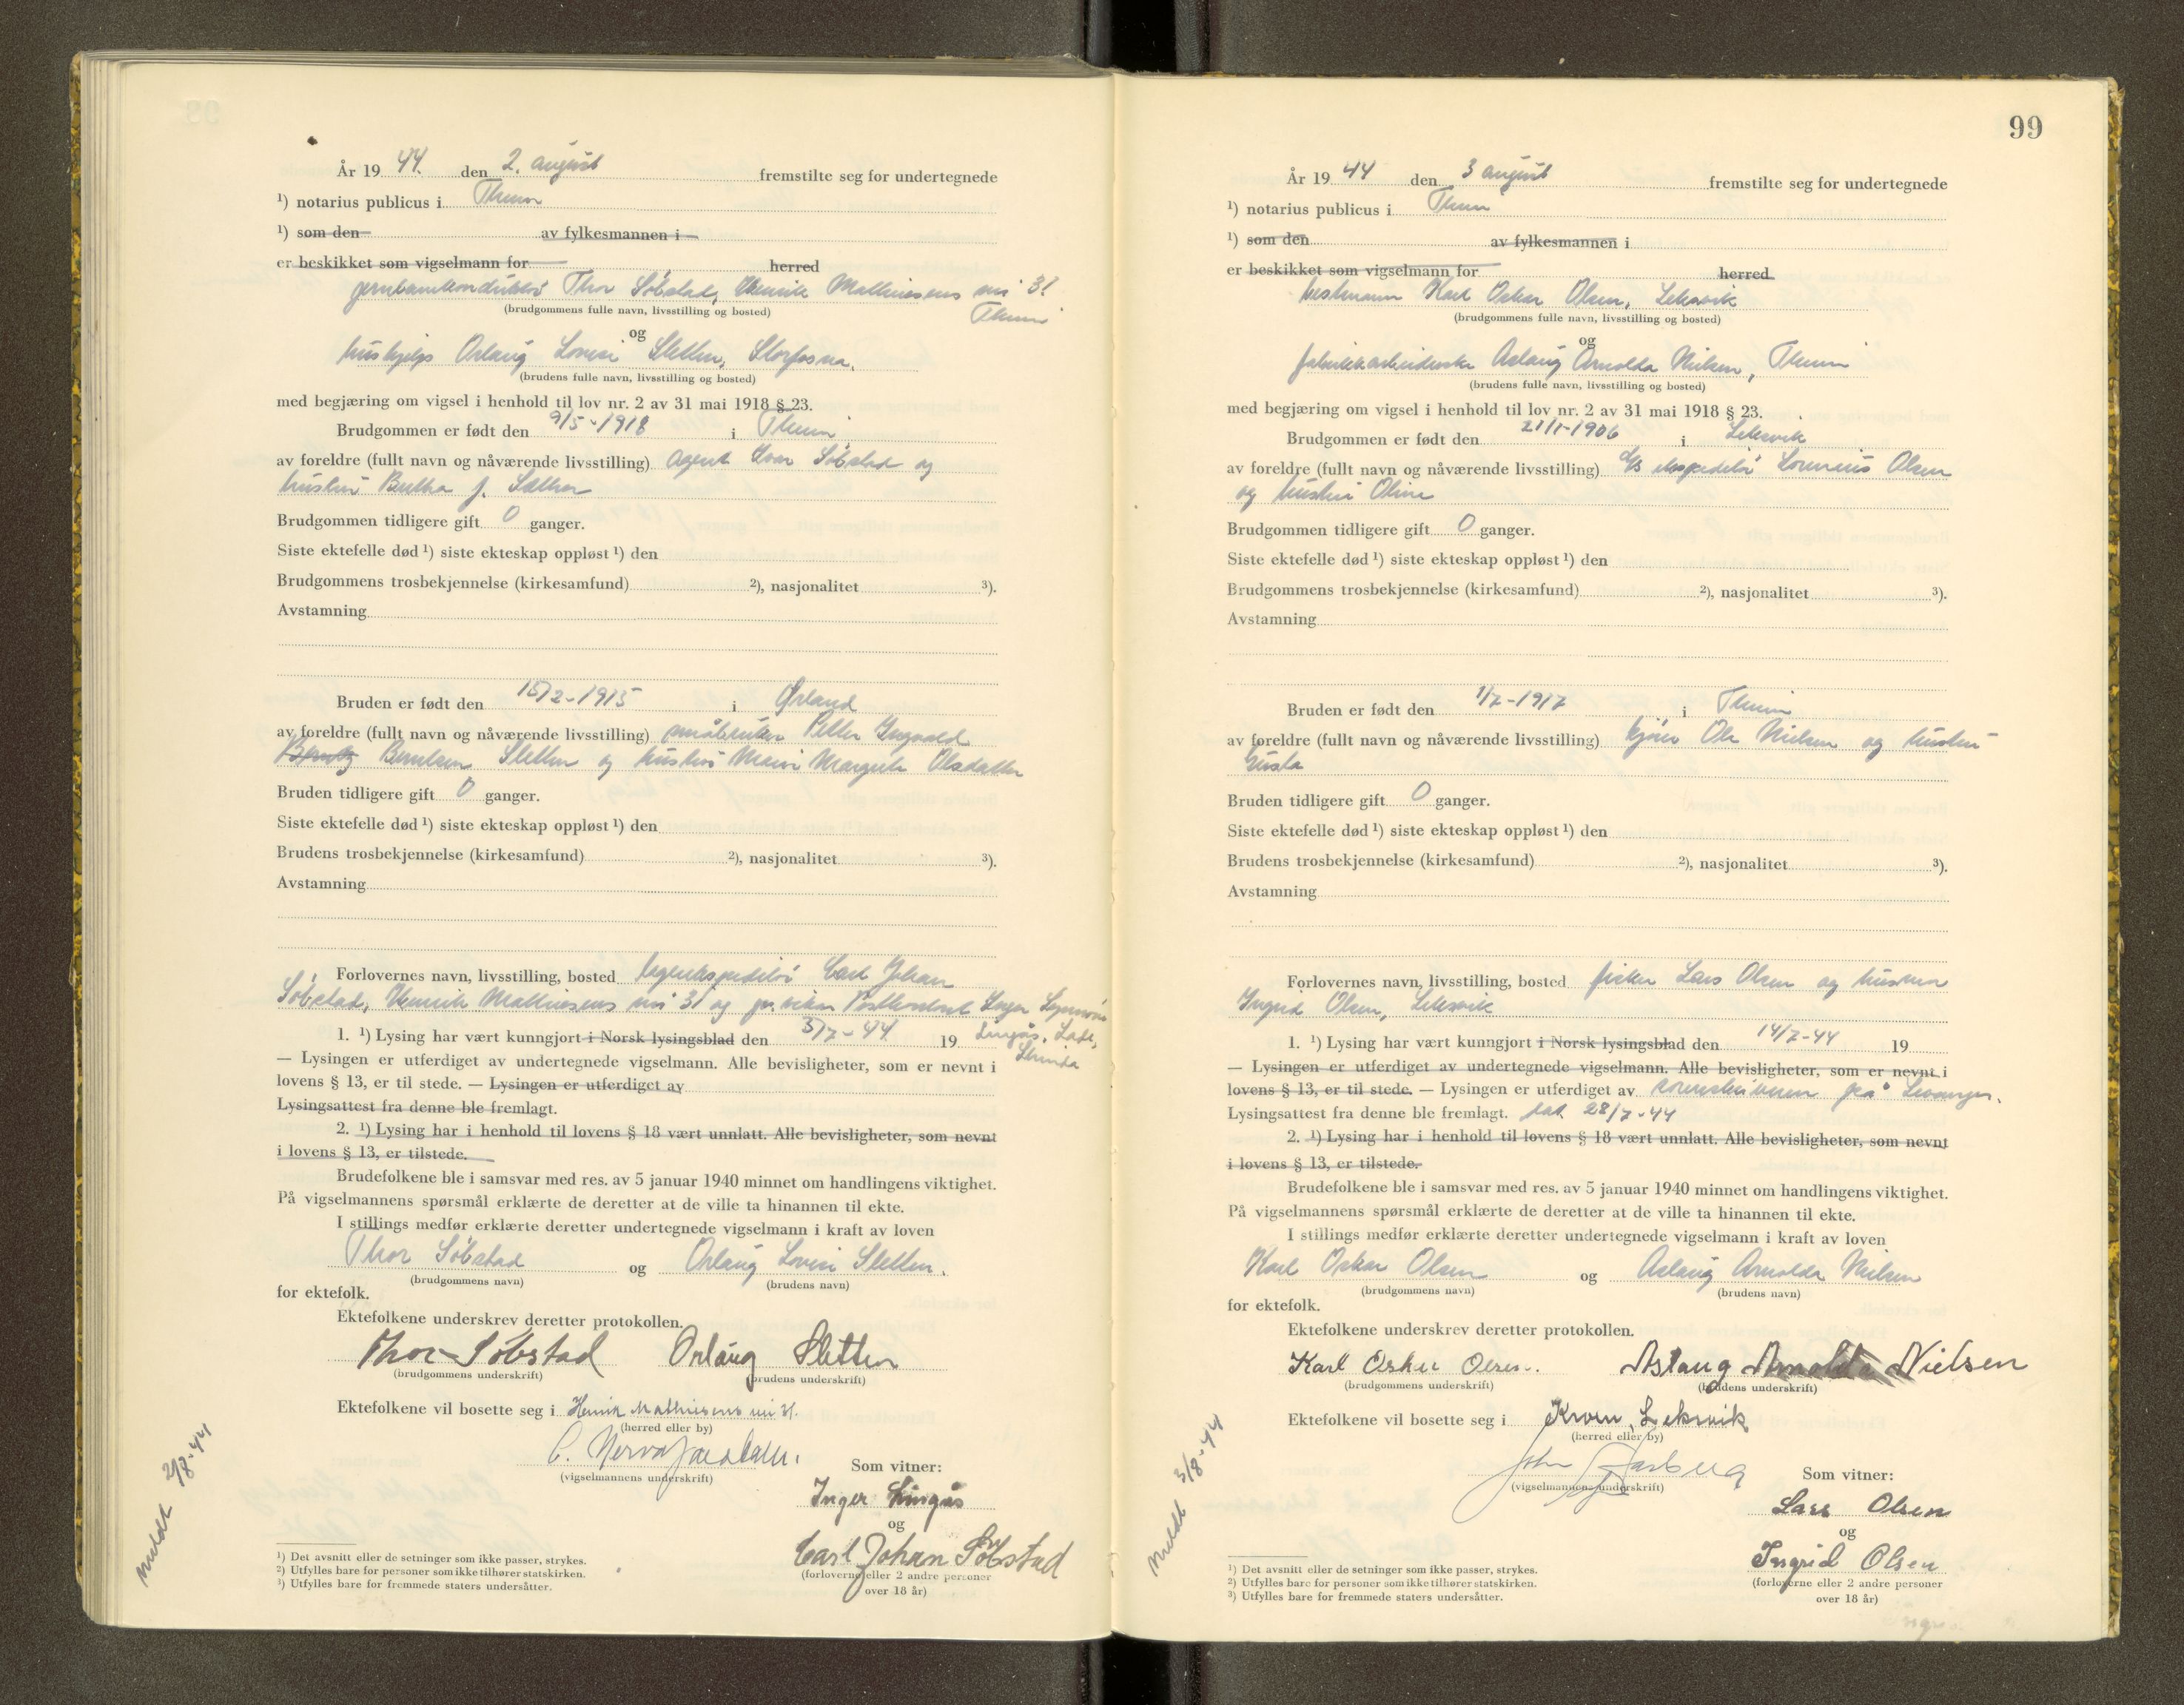 År 19 44. den 2. august fremstilte seg for undertegnede
¹) notarius publicus i
¹) som den av fylkesmannen i
er beskikket som vigselmann for herred
Thor Søbstad, Henrik Mathiesens vei 31
(brudgommens fulle navn, livsstilling og bosted)
og
hushjelp Orlaug Lovise Sletten, Storfosna.
(brudens fulle navn, livsstilling og bosted)
med begjæring om vigsel i henhold til lov nr. 2 av 31 mai 1918 § 23.
Brudgommen er født den 9/5-1918 i
av foreldre (fullt navn og nåværende livsstilling) agent Søbstad og
hustru f.
Brudgommen tidligere gift 0 ganger.
Siste ektefelle død ¹) siste ekteskap oppløst ¹) den
Brudgommens trosbekjennelse (kirkesamfund) ²), nasjonalitet ³).
Avstamning
Bruden er født den 15/2-1915 i Ørland
av foreldre (fullt navn og nåværende livsstilling) småbruker Petter Ingvald
Berntsen Sletten og hustru Olsdatter
Bruden tidligere gift 0 ganger.
Siste ektefelle død ¹) siste ekteskap oppløst ¹) den
Brudens trosbekjennelse (kirkesamfund) ²), nasjonalitet ³).
Avstamning
Forlovernes navn, livsstilling, bosted lagerekspeditør Carl Johan
Søbstad, Henrik Mathiesens vei 31 og Inger
1. ¹) Lysing har vært kunngjort i Norsk lysingsblad den 3/7-44 19 Lade,
Strinda
— Lysingen er utferdiget av undertegnede vigselmann. Alle bevisligheter, som er nevnt i
lovens § 13, er til stede. — Lysingen er utferdiget av
Lysingsattest fra denne ble fremlagt.
2. ¹) Lysing har i henhold til lovens § 18 vært unnlatt. Alle bevisligheter, som nevnt
i lovens § 13, er tilstede.
Brudefolkene ble i samsvar med res. av 5 januar 1940 minnet om handlingens viktighet.
På vigselmannens spørsmål erklærte de deretter at de ville ta hinannen til ekte.
I stillings medfør erklærte deretter undertegnede vigselmann i kraft av loven
Thor Søbstad og Orlaug Lovise Sletten.
(brudgommens navn) (brudens navn)
for ektefolk.
Ektefolkene underskrev deretter protokollen.
Thor Søbstad Orlaug Sletten
(brudgommens underskrift) (brudens underskrift)
Ektefolkene vil bosette seg i Henrik Mathiesens vei 31.
(herred eller by)
(vigselmannens underskrift)
Som vitner:
Inger
og
Carl Johan Søbstad
(forloverne eller 2 andre personer
over 18 år)
meldt 2/8-44
¹) Det avsnitt eller de setninger som ikke passer, strykes.
²) Utfylles bare for personer som ikke tilhører statskirken.
³) Utfylles bare for fremmede staters undersåtter.
99
År 19 44 den 3 august fremstilte seg for undertegnede
¹) notarius publicus i
¹) som den av fylkesmannen i
er beskikket som vigselmann for herred
Karl Oskar Olsen, Leksvik
(brudgommens fulle navn, livsstilling og bosted)
og
fabrikkarbeiderske Aslaug Arnolda Nielsen,
(brudens fulle navn, livsstilling og bosted)
med begjæring om vigsel i henhold til lov nr. 2 av 31 mai 1918 § 23.
Brudgommen er født den 21/1-1906 i Leksvik
av foreldre (fullt navn og nåværende livsstilling) ekspeditør Olsen
og hustru Oline
Brudgommen tidligere gift 0 ganger.
Siste ektefelle død ¹) siste ekteskap oppløst ¹) den
Brudgommens trosbekjennelse (kirkesamfund) ²), nasjonalitet ³).
Avstamning
Bruden er født den 1/7-1917 i
av foreldre (fullt navn og nåværende livsstilling) Ole Nielsen og hustru
Gusta
Bruden tidligere gift 0 ganger.
Siste ektefelle død ¹) siste ekteskap oppløst ¹) den
Brudens trosbekjennelse (kirkesamfund) ²), nasjonalitet ³).
Avstamning
Forlovernes navn, livsstilling, bosted fisker Lars Olsen og hustru
Ingrid Olsen, Leksvik
1. ¹) Lysing har vært kunngjort i Norsk lysingsblad den 14/7-44 19
— Lysingen er utferdiget av undertegnede vigselmann. Alle bevisligheter, som er nevnt i
lovens § 13, er til stede. — Lysingen er utferdiget av sorenskriveren på Levanger.
Lysingsattest fra denne ble fremlagt. dat. 28/7-44
2. ¹) Lysing har i henhold til lovens § 18 vært unnlatt. Alle bevisligheter, som nevnt
i lovens § 13, er tilstede.
Brudefolkene ble i samsvar med res. av 5 januar 1940 minnet om handlingens viktighet.
På vigselmannens spørsmål erklærte de deretter at de ville ta hinannen til ekte.
I stillings medfør erklærte deretter undertegnede vigselmann i kraft av loven
Karl Oskar Olsen og Aslaug Arnolda Nielsen
(brudgommens navn) (brudens navn)
for ektefolk.
Ektefolkene underskrev deretter protokollen.
Karl Oskar Olsen. Aslaug Arnolda Nielsen
(brudgommens underskrift) (brudens underskrift)
Ektefolkene vil bosette seg i Leksvik
(herred eller by)
John
(vigselmannens underskrift)
Som vitner:
Lars Olsen
og
Ingrid Olsen
(forloverne eller 2 andre personer
over 18 år)
meldt 3/8-44
¹) Det avsnitt eller de setninger som ikke passer, strykes.
²) Utfylles bare for personer som ikke tilhører statskirken.
³) Utfylles bare for fremmede staters undersåtter.